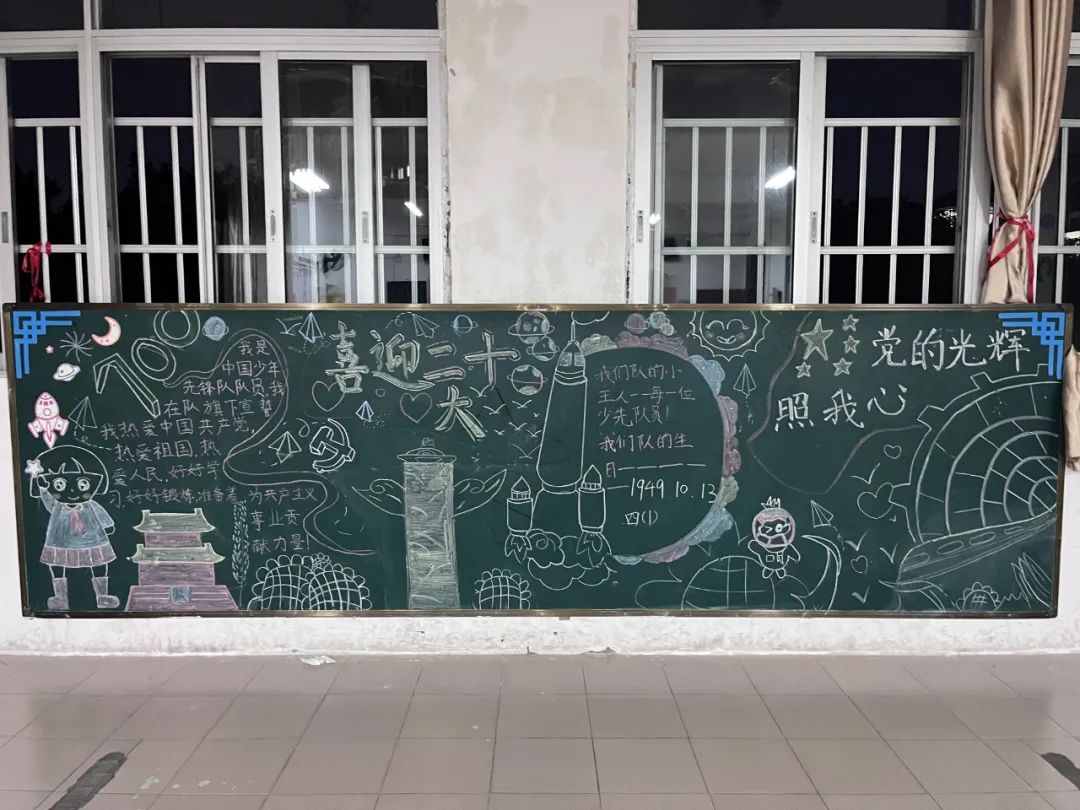 100
我是
中国少年
先锋队队员,我
在队旗下宣誓
我热爱中国共产党,
热爱祖国,热
爱人民,好好学
习,好好锻炼,准备着,为共产主义
事业贡
献力量!
喜迎二十
大
我们队的小
主人—每一位
少先队员!
我们队的生
日—————
—1949 10.13
四(1)
党的光辉
照我心